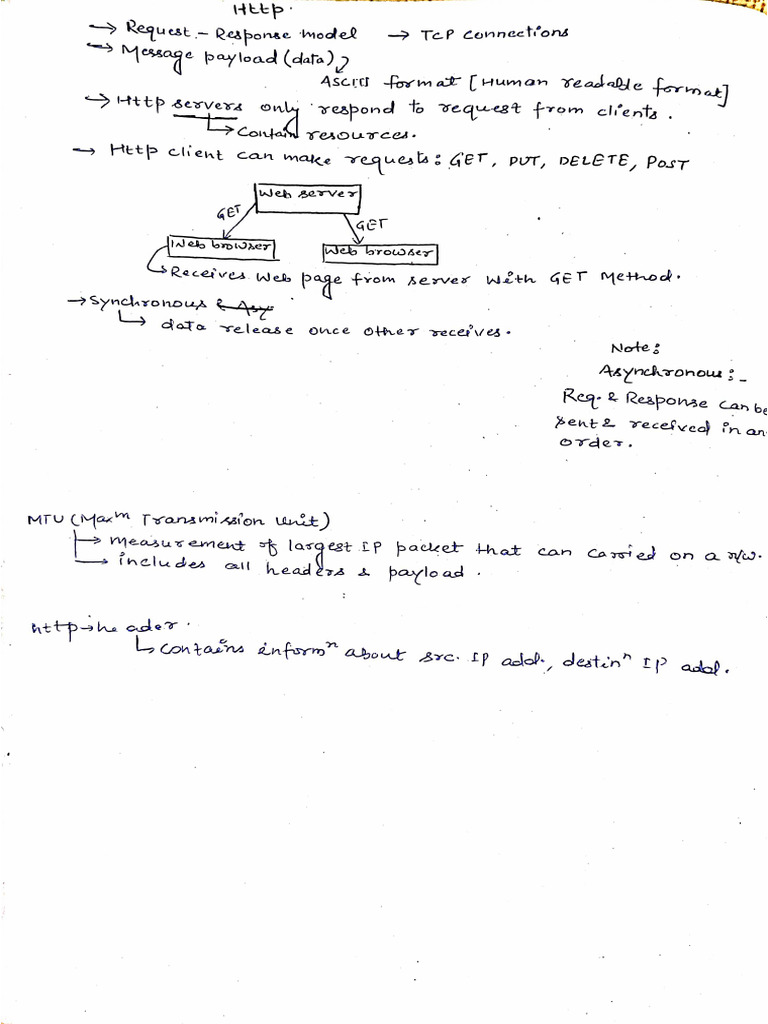 Http.
→ Request - Response model → TCP connections
→ Message payload (data)
ASCII format [Human readable format]
→ Http servers only respond to request from clients.
↳ Contain resources.
→ Http client can make requests: GET, PUT, DELETE, POST
Web server
GET GET
Web browser Web browser
↳ Receives web page from server with GET Method.
→ Synchronous & Asy
↳ data release once other receives.
Note:
Asynchronous:-
Req. & Response can be
sent & received in an
order.
MTU (Maxᵐ Transmission Unit)
→ measurement of largest IP packet that can carried on a n/w.
→ includes all headers & payload.
http→header.
↳ contains informⁿ about src. IP add., destinⁿ IP add.